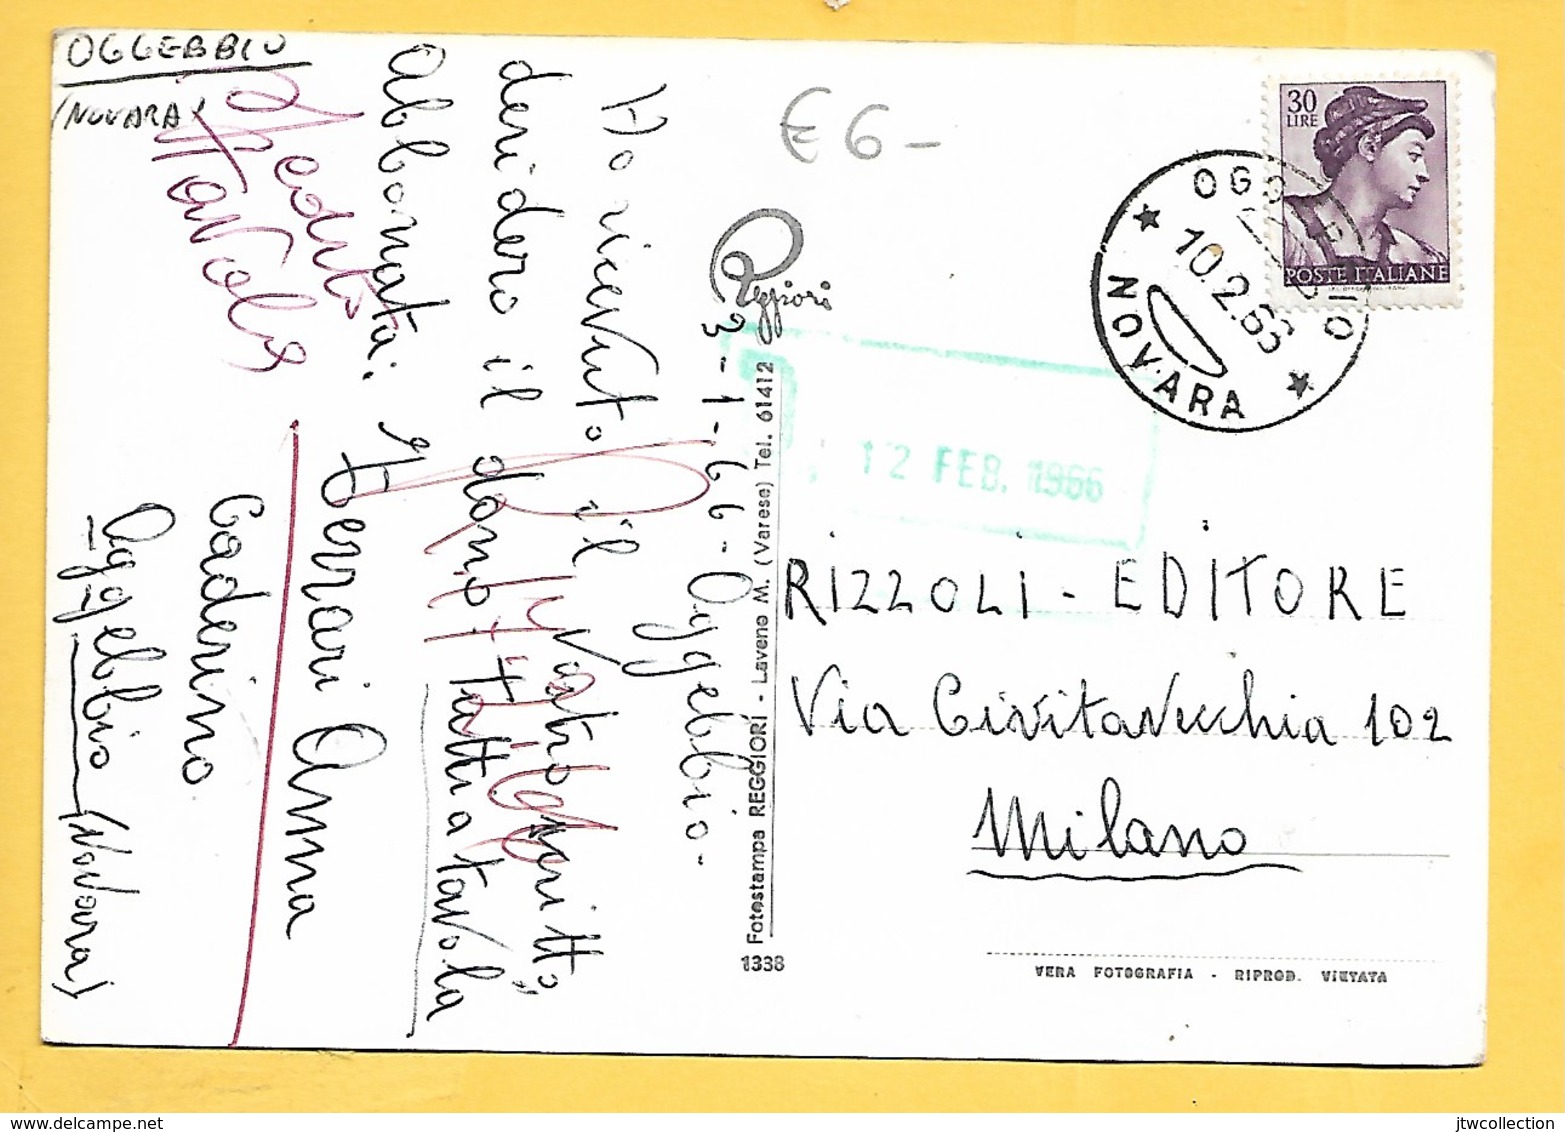 OGGEBBIO
(NOVARA)
3-1-66-Oggebbio-
Ho ricevuto il vostro scritto,,
desidero il dono "Fatti a tavola
Abbonata: Ferrari Anna
Caderino
Oggebbio (Novara)
€ 6-
30
LIRE
POSTE ITALIANE
OGGEBBIO
10.2.66
NOVARA
12 FEB. 1966
Reggiori
Fotostampa REGGIORI - Laveno M. (Varese) Tel. 61412
1338
RIZZOLI - EDITORE
Via Civitavecchia 102
Milano
VERA FOTOGRAFIA - RIPROD. VIETATA
jtwcollection